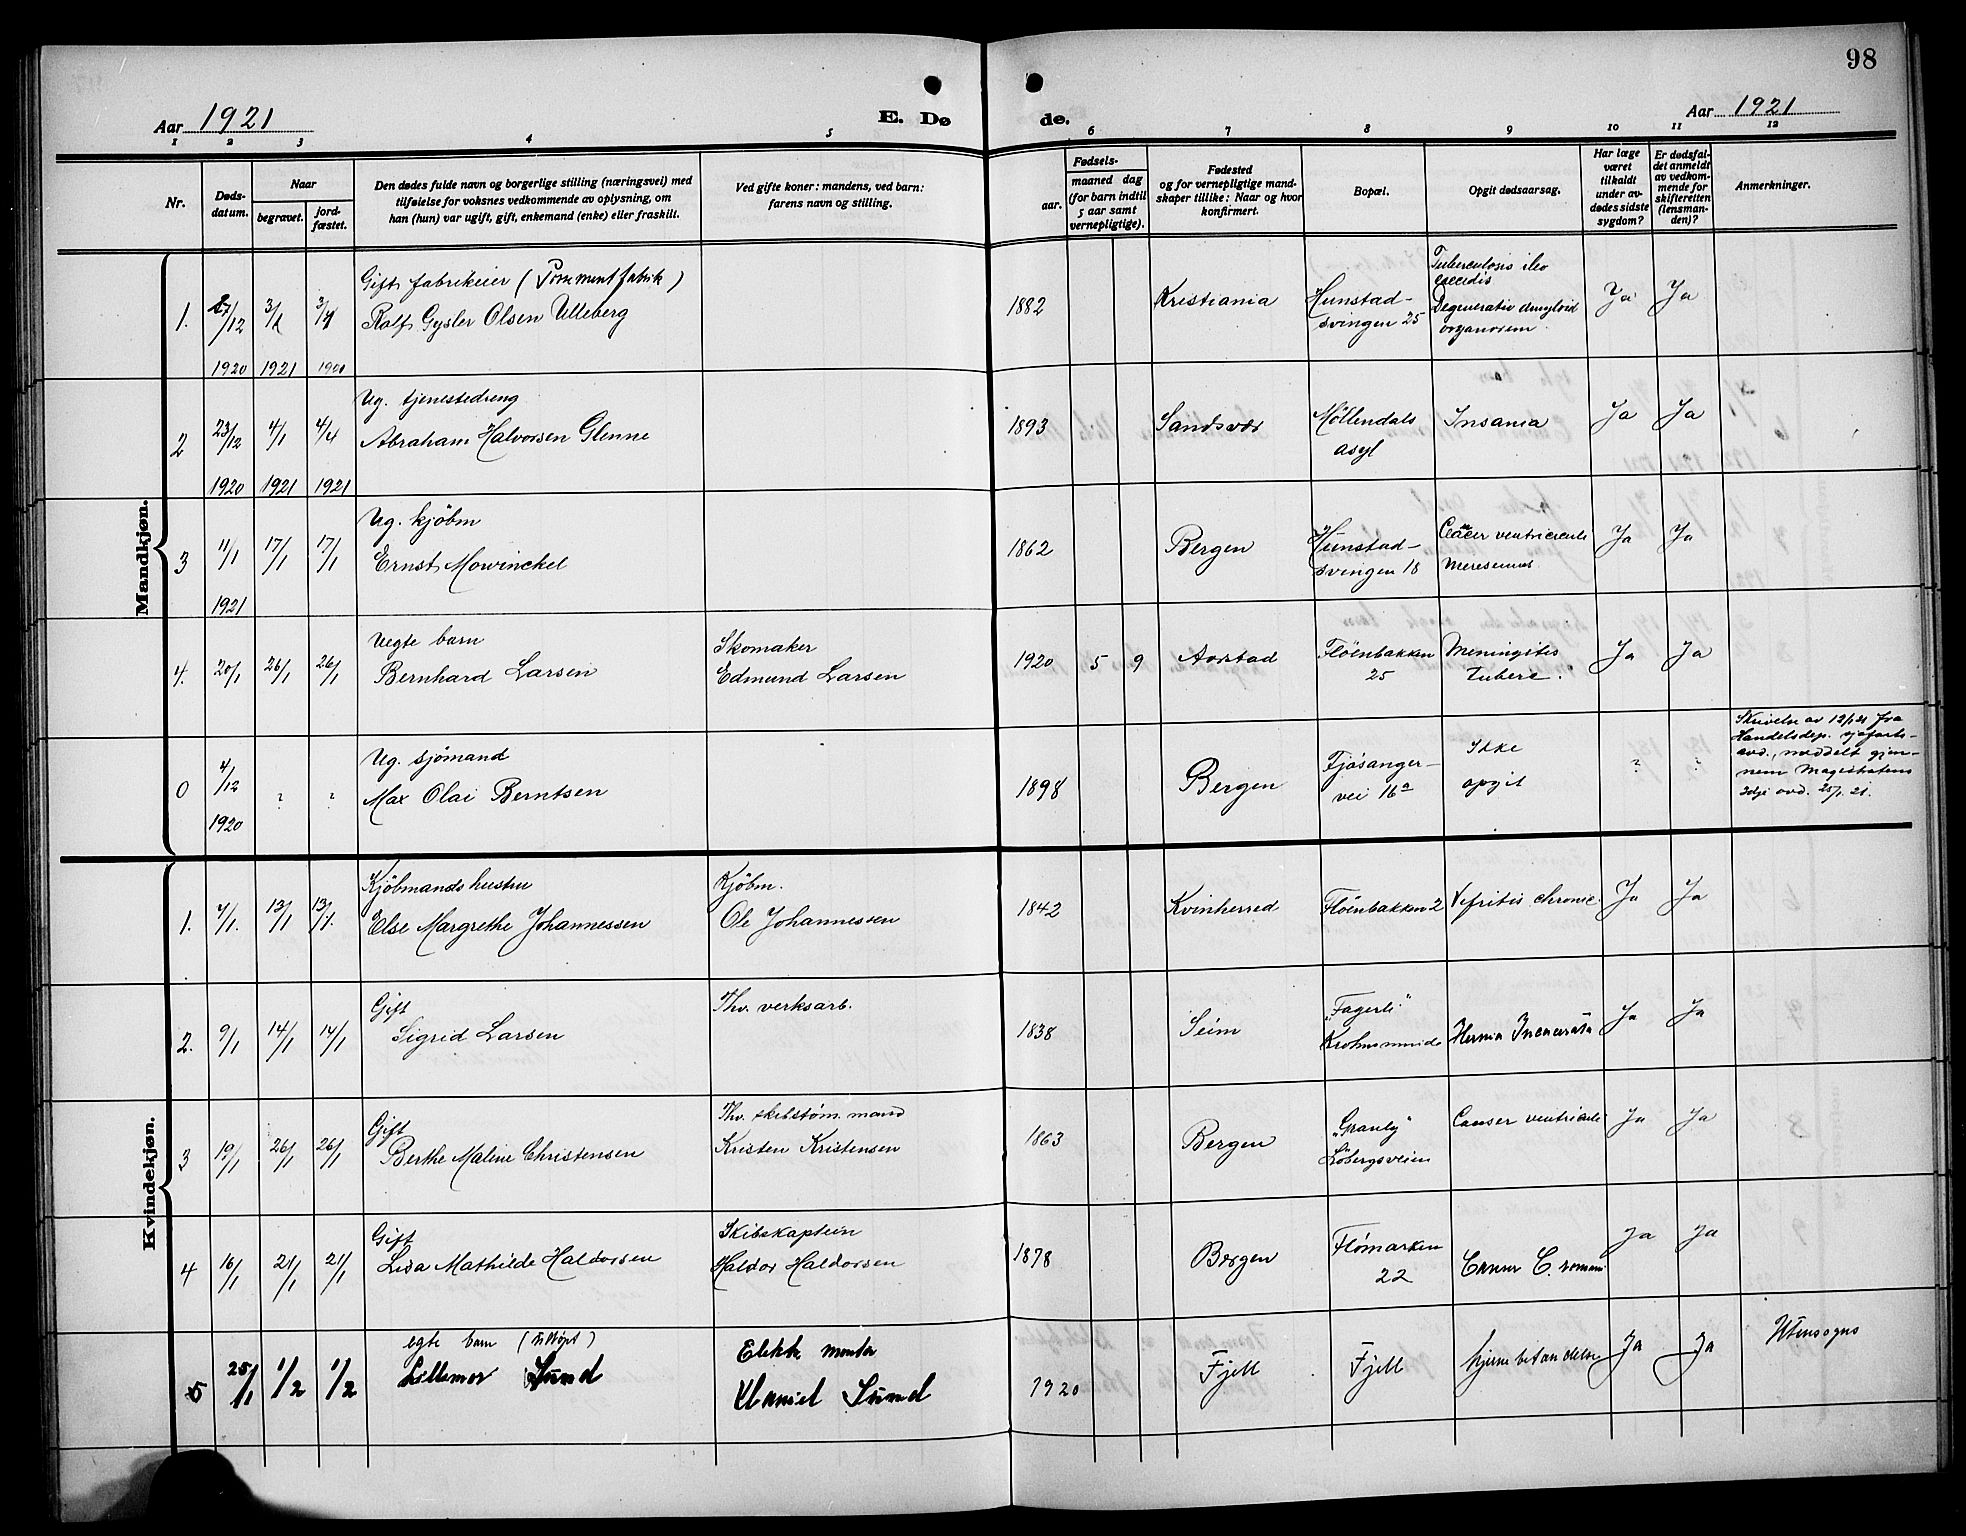 98
Aar 1921
E. Dø
de.
Aar 1921
1 2 3 4 5 6 7 8 9 10 11 12
Nr.
Døds-
datum.
Naar
begravet.
jord-
fæstet.
Den dødes fulde navn og borgerlige stilling (næringsvei) med
tilføielse for voksnes vedkommende av oplysning, om
han (hun) var ugift, gift, enkemand (enke) eller fraskilt.
Ved gifte koner: mandens, ved barn:
farens navn og stilling.
Fødsels-
aar.
maaned dag
(for barn indtil
5 aar samt
vernepligtige).
Fødested
og for vernepligtige mand-
skaper tillike: Naar og hvor
konfirmert.
Bopæl.
Opgit dødsaarsag.
Har læge
været
tilkaldt
under av-
dødes sidste
sygdom?
Er dødsfal-
det anmeldt
av vedkom-
mende for
skifteretten
(lensman-
den)?
Anmerkninger.
Mandkjøn.
1.
27/12
1920
3/1
1921
Gift fabrikeier
Rolf Gysler Olsen Ulleberg
1882
Kristiania
Hunstad-
svingen 25
Tuberculosis ileo
Degeneratio amyloid
organorum
Ja
Ja
2
23/12
1920
4/1
1921
4/4
1921
Ug. tjenestedreng
Abraham Halvorsen Glenne
1893
Sandsvær
Møllendals
asyl
Insania
Ja
Ja
3
11/1
1921
17/1
17/1
Ug. kjöbm
Ernst Mowinckel
1862
Bergen
Hunstad-
svingen 18
Ja
Ja
4.
20/1
26/1
26/1
Ægte barn
Bernhard Larsen
Skomaker
Edmund Larsen
1920
5
9
Aarstad
Flöenbakken
25
Meningitis
tuberc.
Ja
Ja
0
4/12
1920
?
?
Ug. sjömand
Max Olai Berntsen
1898
Bergen
Fjøsanger-
vei 16a
Ikke
opgit
?
?
Skrivelse av 12/1 21 fra
Handelsdep. sjøfarts-
avd., meddelt gjen-
nem Magistratens
3dje avd. 25/1. 21.
Kvindekjøn.
1.
7/1.
13/1
13/1.
Kjöbmandshustru
Else Margrethe Johannessen
Kjöbm.
Ole Johannessen
1842
Kvinherred
Flöenbakken 2
Nefritis chronic.
Ja
Ja
2.
9/1
14/1
14/1
Gift
Sigrid Larsen
Thv. verksarb.
1838
Seim
"Fagerli"
Hernia
Ja
Ja
3
19/1
26/1
26/1
Gift
Berthe Maline Christensen
Thv. skibstøm. mand
Kristen Kristensen
1863
Bergen
"Granly"
Löbergsveien
Canser ventriculi
Ja
Ja
4
16/1
21/1
21/1
Gift
Lisa Mathilde Haldorsen
Skibskaptein
Haldor Haldorsen
1878
Bergen
Flömarken
22
Ja
Ja
5
25/1
1/2
1/2
egte barn
Lillemor Sund
Elektr montør
Daniel Sund
1920
Fjell
Fjell
hjernebetændelse
Ja
Ja
Utensogns